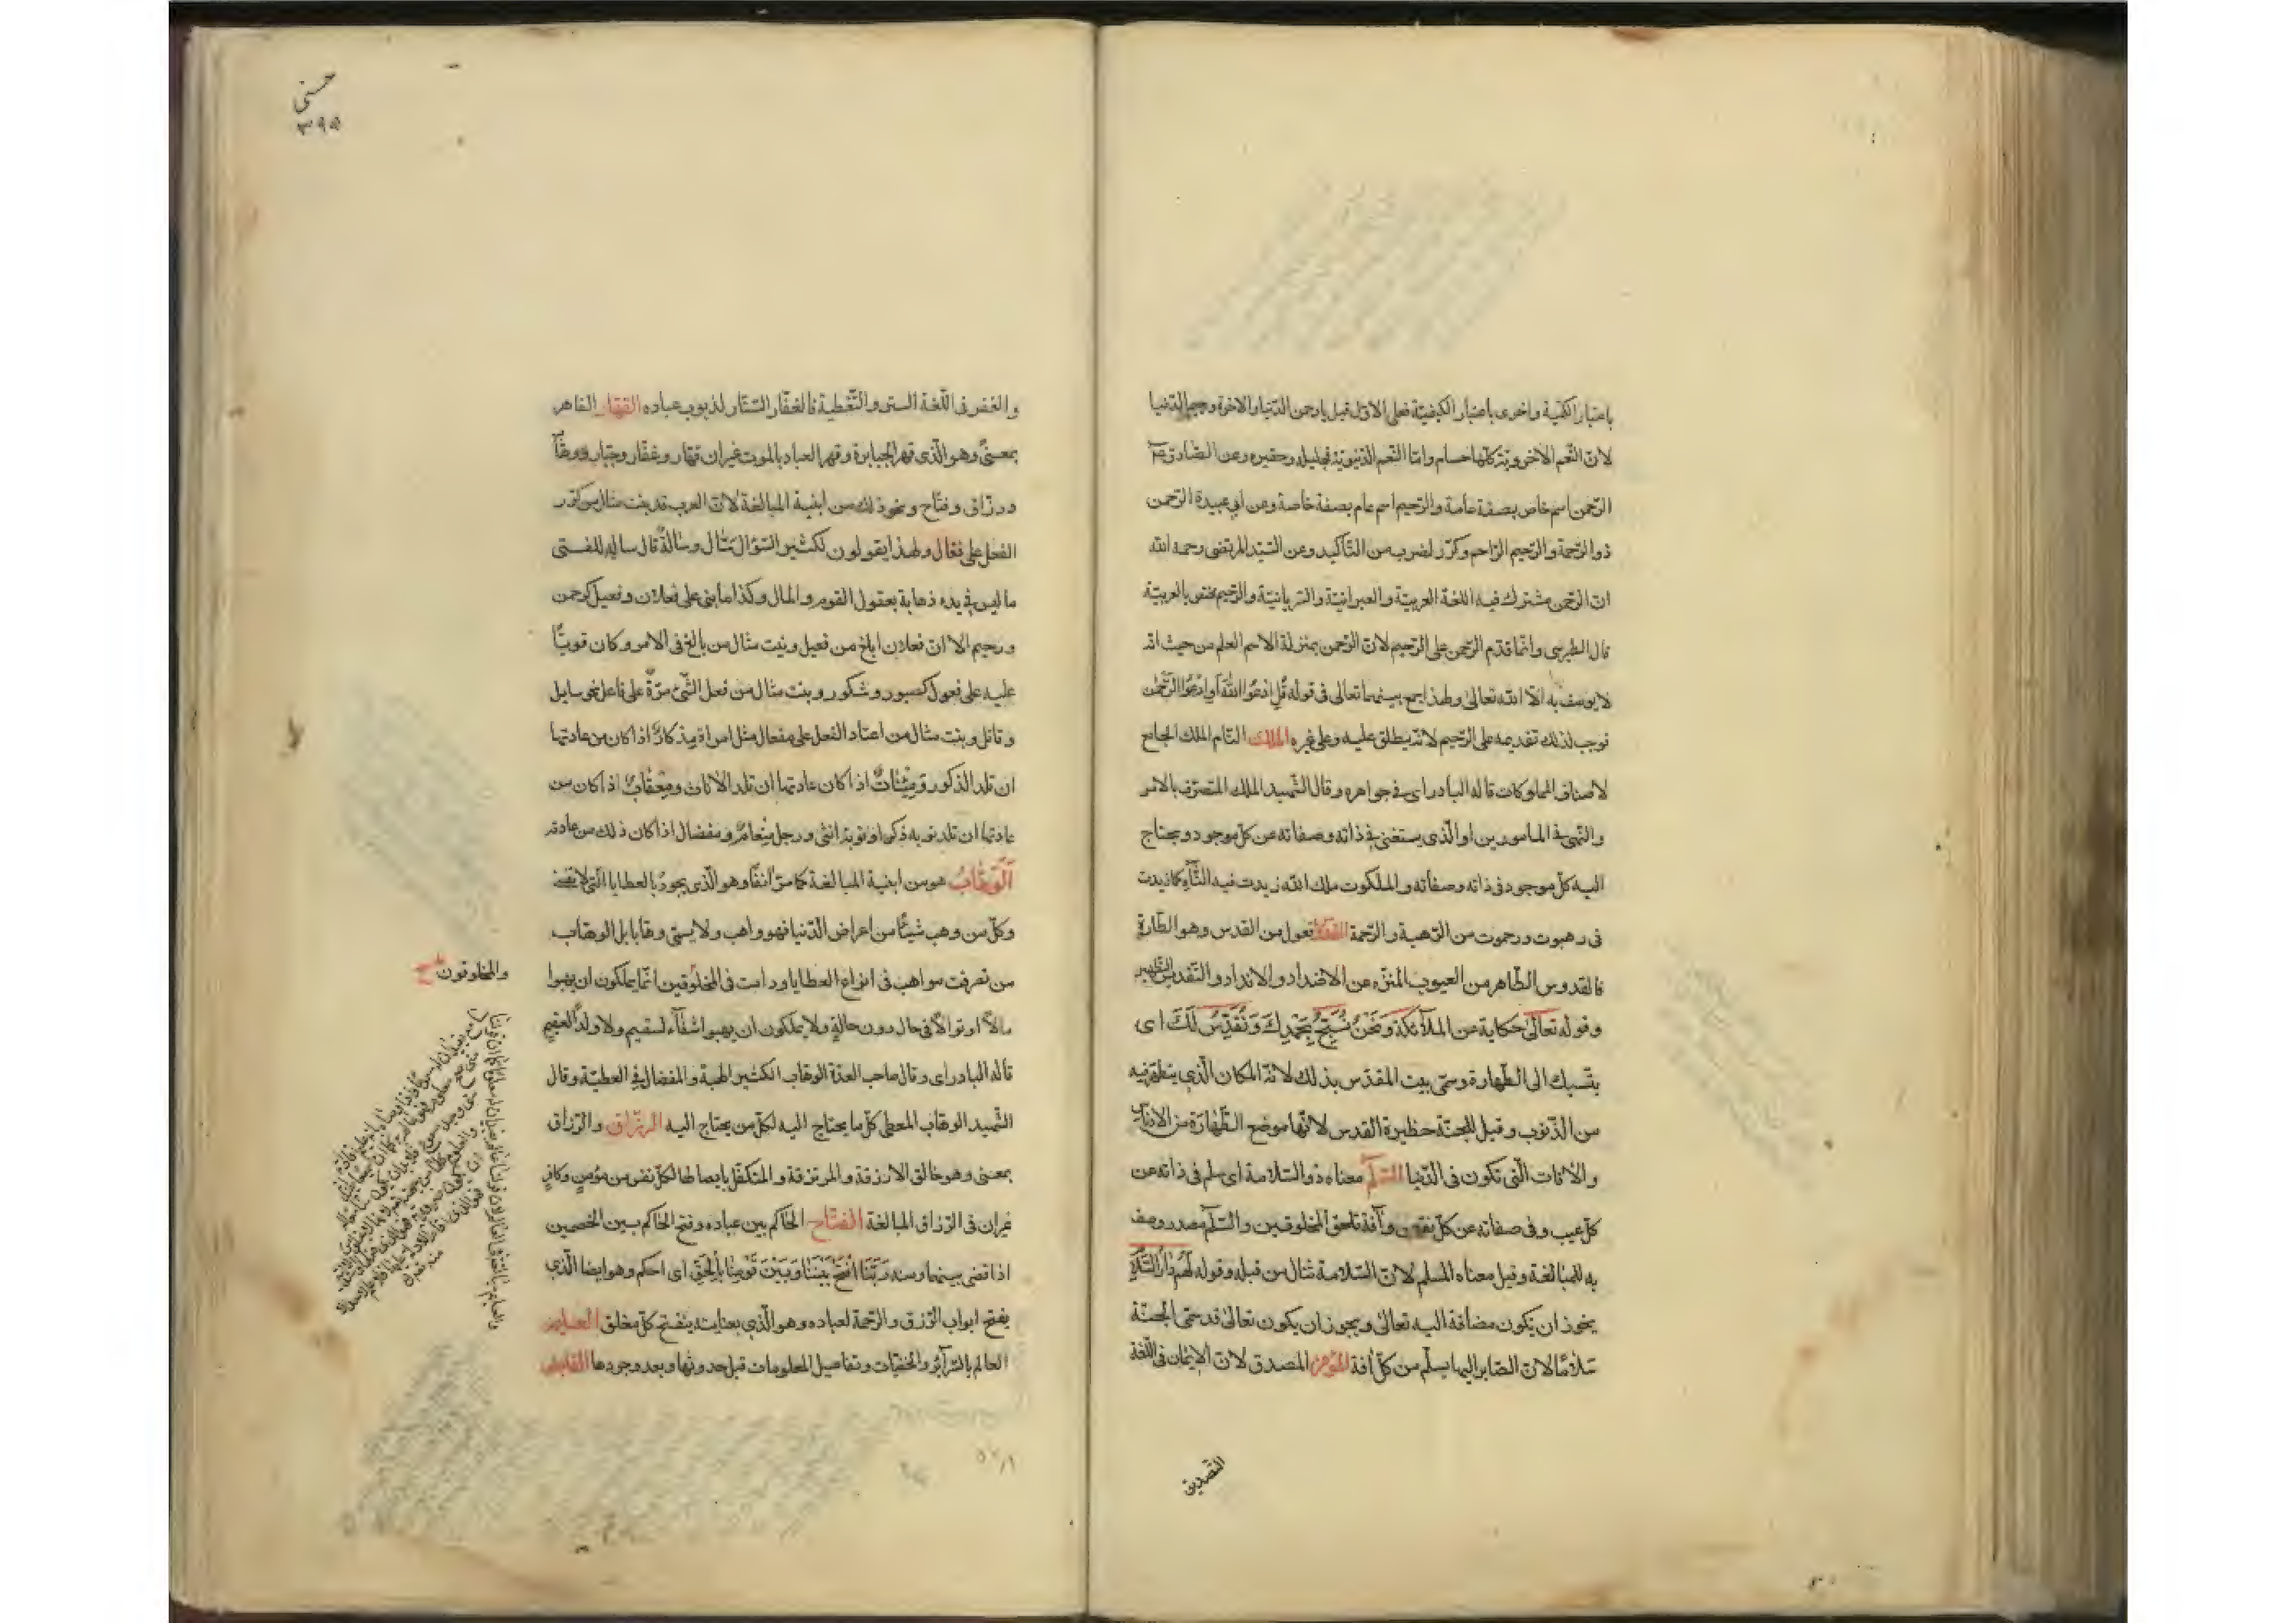 باعتبار الكمية واخرى باعتبار الكيفيّة فعلى الاوّل قيل يا رحمن الدّنيا والاخرة ورحيم الدّنيا
لانّ النّعم الاخرويّة كلّها جسام وامّا النّعم الدّنيويّة فجليلة وحقيرة وعن الصّادق ع
الرّحمن اسم خاص بصفة عامة والرّحيم اسم عام بصفة خاصة وعن ابي عبيدة الرّحمن
ذو الرّحمة والرّحيم الرّاحم وكرّر لضرب من التّأكيد وعن السّيّد المرتضى رحمه الله
انّ الرّحمن مشترك فيه اللغة العربيّة والعبرانيّة والسّريانيّة والرّحيم مختص بالعربيّة
قال الطبرسى وانّما قدّم الرّحمن على الرّحيم لانّ الرّحمن بمنزلة الاسم العلم من حيث انّه
لا يوصف به الّا الله تعالى ولهذا جمع بينهما تعالى فى قوله قُلِ ادْعُوا اللَّهَ أَوِ ادْعُوا الرَّحْمٰنَ
فوجب لذلك تقديمه على الرّحيم لانّه يطلق عليه وعلى غيره الملك التّام الملك الجامع
لاصناف المملوكات قاله البادراى فى جواهره وقال الشّهيد الملك المتصرّف بالامر
والنّهى فى المامورين او الّذى يستغنى فى ذاته وصفاته عن كلّ موجود ويحتاج
اليه كلّ موجود فى ذاته وصفاته والملكوت ملك الله زيدت فيه التّاء كما زيدت
فى رهبوت ورحموت من الرّهبة والرّحمة القدّوس فعول من القدس وهو الطّهارة
فالقدوس الطّاهر من العيوب المنزّه عن الاضداد والانداد والتّقديس التّطهير
وقوله تعالى حكاية عن الملآئكة وَنَحْنُ نُسَبِّحُ بِحَمْدِكَ وَنُقَدِّسُ لَكَ اى
ننسبك الى الطّهارة وسمّى بيت المقدّس بذلك لانّه المكان الّذى يتطهّر فيه
من الذّنوب وقيل للجنّة حظيرة القدس لانّها موضع الطّهارة من الادناس
والآفات الّتى تكون فى الدّنيا السّلم معناه ذو السّلامة اى سلم فى ذاته عن
كلّ عيب وفى صفاته عن كلّ نقص وآفة تلحق المخلوقين والسّلم مصدر وصف
به للمبالغة وقيل معناه المسلم لانّ السّلامة تنال من قبله وقوله لَهُمْ دَارُ السَّلَامِ
يجوز ان يكون مضافة اليه تعالى ويجوز ان يكون تعالى قد سمّى الجنّة
سَلامًا لانّ الصّاير اليها يسلم من كلّ افة المؤمن المصدق لانّ الايمان فى اللّغة
التّصديق
حسنى
٣٩٥
والغفر فى اللّغة الستر والتّغطية فالغفّار السّتّار لذنوب عباده القهّار القاهر
بمعنىً وهو الّذى قهر الجبابرة وقهر العباد بالموت غير ان قهّار وغفّار وجبّار ووهّاب
ورزّاق وفتّاح ونحو ذلك من ابنية المبالغة لانّ العرب قد بنت مثال من كرّر
الفعل على فعّال ولهذا يقولون لكثير السّؤال سئّال وسئّالةٌ قال سالة للفتى
ما ليس فى يده ذهابة بعقول القوم والمال وكذا ما بنى على فعلان وفعيل كرحمن
ورحيم الا انّ فعلان ابلغ من فعيل وبنت مثال من بالغ فى الامر وكان قويًّا
عليه على فعول كصبور وشكور وبنت مثال من فعل الشّئ مرّةً على فاعل نحو سايل
وقاتل وبنت مثال من اعتاد الفعل على مفعال مثل امراة مذكارٌ اذا كان من عادتها
ان تلد الذكور ومئناثٌ اذا كان عادتها ان تلد الاناث ومِعْقابٌ اذا كان من
عادتها ان تلد نوبة ذكرا ونوبة انثى ورجل مِنْعامٌ ومفضال اذا كان ذلك من عادته
الوَهّابُ هو من ابنية المبالغة كما مرّ انفًا وهو الّذى يجود بالعطايا الّتى لا تفنى
وكلّ من وهب شيئًا من اعراض الدّنيا فهو واهب ولا يسمّى وهّابا بل الوهّاب
من تصرفت مواهبه فى انواع العطايا ودامت فى المخلوقين انّما يملكون ان يهبوا
مالًا او نوالًا فى حال دون حالةٍ ولا يملكون ان يهبوا شفآءً لسقيم ولا ولدًا لعقيم
قاله البادراى وقال صاحب العدّة الوهّاب الكثير الهبة والمفضال فى العطيّة وقال
الشّهيد الوهّاب المعطى كلّ ما يحتاج اليه لكلّ من يحتاج اليه الرزّاق والرّازق
بمعنى وهو خالق الارزقة والمرتزقة والمتكفّل بايصالها لكلّ نفس من مؤمنٍ وكافرٍ
غير ان فى الرّزاق المبالغة الفتّاح الحاكم بين عباده وفتح الحاكم بين الخصمين
اذا قضى بينهما ومنه رَبَّنَا افْتَحْ بَيْنَنَا وَبَيْنَ قَوْمِنَا بِالْحَقِّ اى احكم وهو ايضا الّذى
يفتح ابواب الرّزق والرّحمة لعباده وهو الّذى بعنايته ينفتح كلّ مغلق العليم
العالم بالسّرآئر والخفيّات وتفاصيل المعلومات قبل حدوثها وبعد وجودها القابض
والمخلوقون